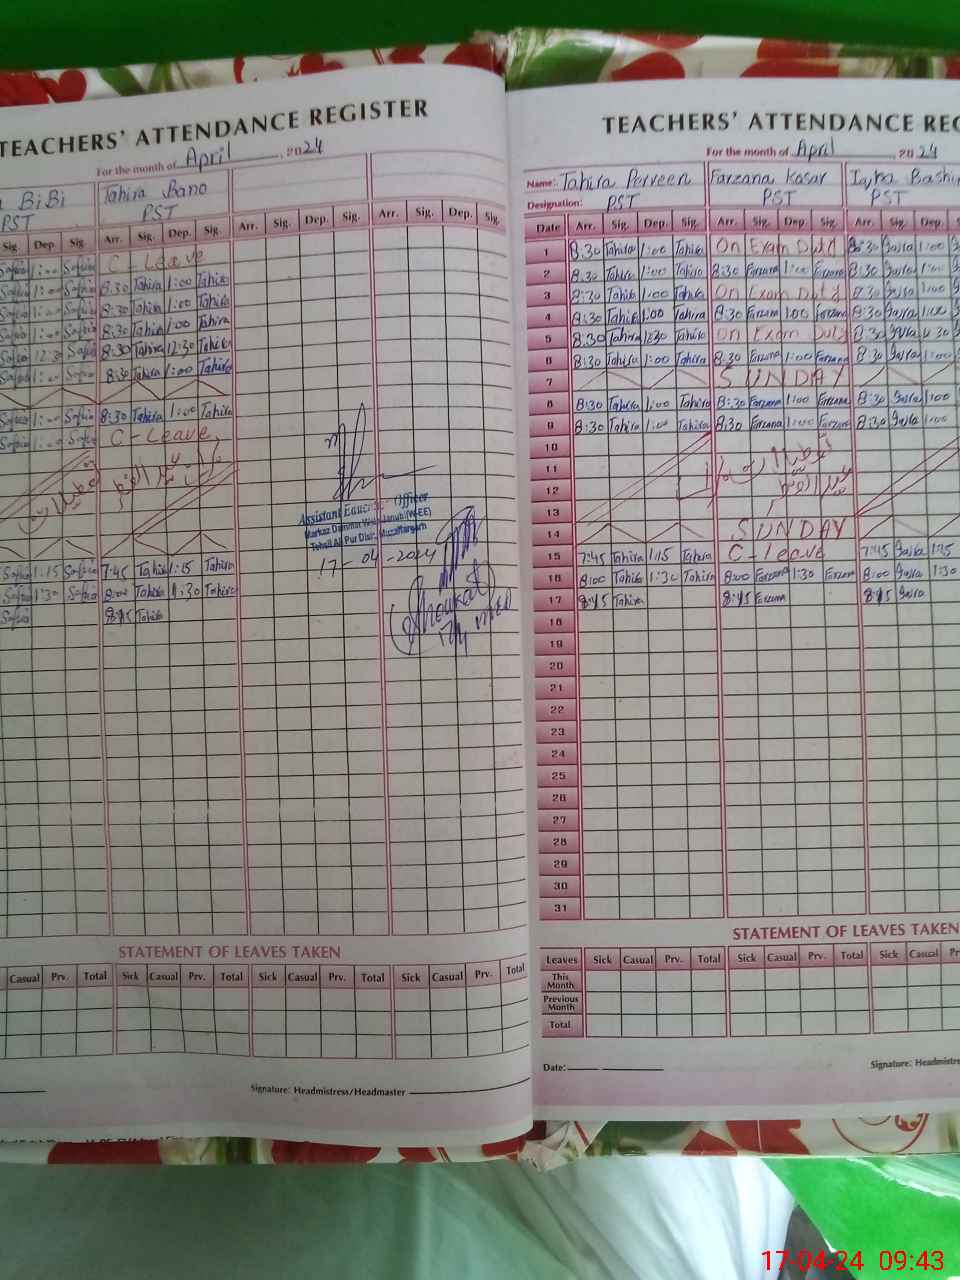 TEACHERS' ATTENDANCE REGISTER
For the month of April, 2024
BiBi Tahira Bano
PST PST
Sig. Dep. Sig. Arr. Sig. Dep. Sig. Arr. Sig. Dep. Sig. Arr. Sig. Dep. Sig.
Safia 1:00 Safia C-Leave
Safia 1:00 Safia 8:30 Tahira 1:00 Tahira
Safia 1:00 Safia 8:30 Tahira 1:00 Tahira
Safia 1:00 Safia 8:30 Tahira 1:00 Tahira
Safia 12:30 Safia 8:30 Tahira 12:30 Tahira
Safia 1:00 Safia 8:30 Tahira 1:00 Tahira
Safia 1:00 Safia 8:30 Tahira 1:00 Tahira
Safia 1:00 Safia C-Leave,
Assistant Education Officer
Tehsil Ali Pur Distt. Muzaffargarh
17-04-2024
Safia 1:15 Safia 7:45 Tahira 1:15 Tahira
Safia 1:30 Safia 8:00 Tahira 1:30 Tahira
Safia 8:45 Tahira
STATEMENT OF LEAVES TAKEN
Casual Prv. Total Sick Casual Prv. Total Sick Casual Prv. Total Sick Casual Prv. Total
Signature: Headmistress/Headmaster
TEACHERS' ATTENDANCE REG
For the month of April 2024
Name: Tahira Perveen Farzana Kosar Iqra Bashir
Designation: PST PST PST
Date Arr. Sig. Dep. Sig. Arr. Sig. Dep. Sig. Arr. Sig. Dep.
1 8:30 Tahira 1:00 Tahira On Exam Duty 8:30 Iqra 1:00
2 8:30 Tahira 1:00 Tahira 8:30 Farzana 1:00 Farzana 8:30 Iqra 1:00
3 8:30 Tahira 1:00 Tahira On Exam Duty 8:30 Iqra 1:00
4 8:30 Tahira 1:00 Tahira 8:30 Farzana 1:00 Farzana 8:30 Iqra 1:00
5 8:30 Tahira 12:30 Tahira On Exam Duty 8:30 Iqra 12:30
6 8:30 Tahira 1:00 Tahira 8:30 Farzana 1:00 Farzana 8:30 Iqra 1:00
7 SUNDAY
8 8:30 Tahira 1:00 Tahira 8:30 Farzana 1:00 Farzana 8:30 Iqra 1:00
9 8:30 Tahira 1:00 Tahira 8:30 Farzana 1:00 Farzana 8:30 Iqra 1:00
10
11
12
13
14 SUNDAY
15 7:45 Tahira 1:15 Tahira C-leave 7:45 Iqra 1:15
16 8:00 Tahira 1:30 Tahira 8:00 Farzana 1:30 Farzana 8:00 Iqra 1:30
17 8:45 Tahira 8:45 Farzana 8:45 Iqra
18
19
20
21
22
23
24
25
26
27
28
29
30
31
STATEMENT OF LEAVES TAKEN
Leaves Sick Casual Prv. Total Sick Casual Prv. Total Sick Casual
This Month
Previous Month
Total
Date: Signature: Headmistre
17-04-24 09:43